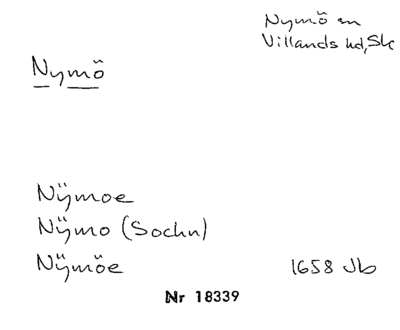 Nymö sn
Villands hd, Sk
Nymö
Nÿmoe
Nÿmo (Sochn)
Nÿmöe 1658 Jb
Nr 18339